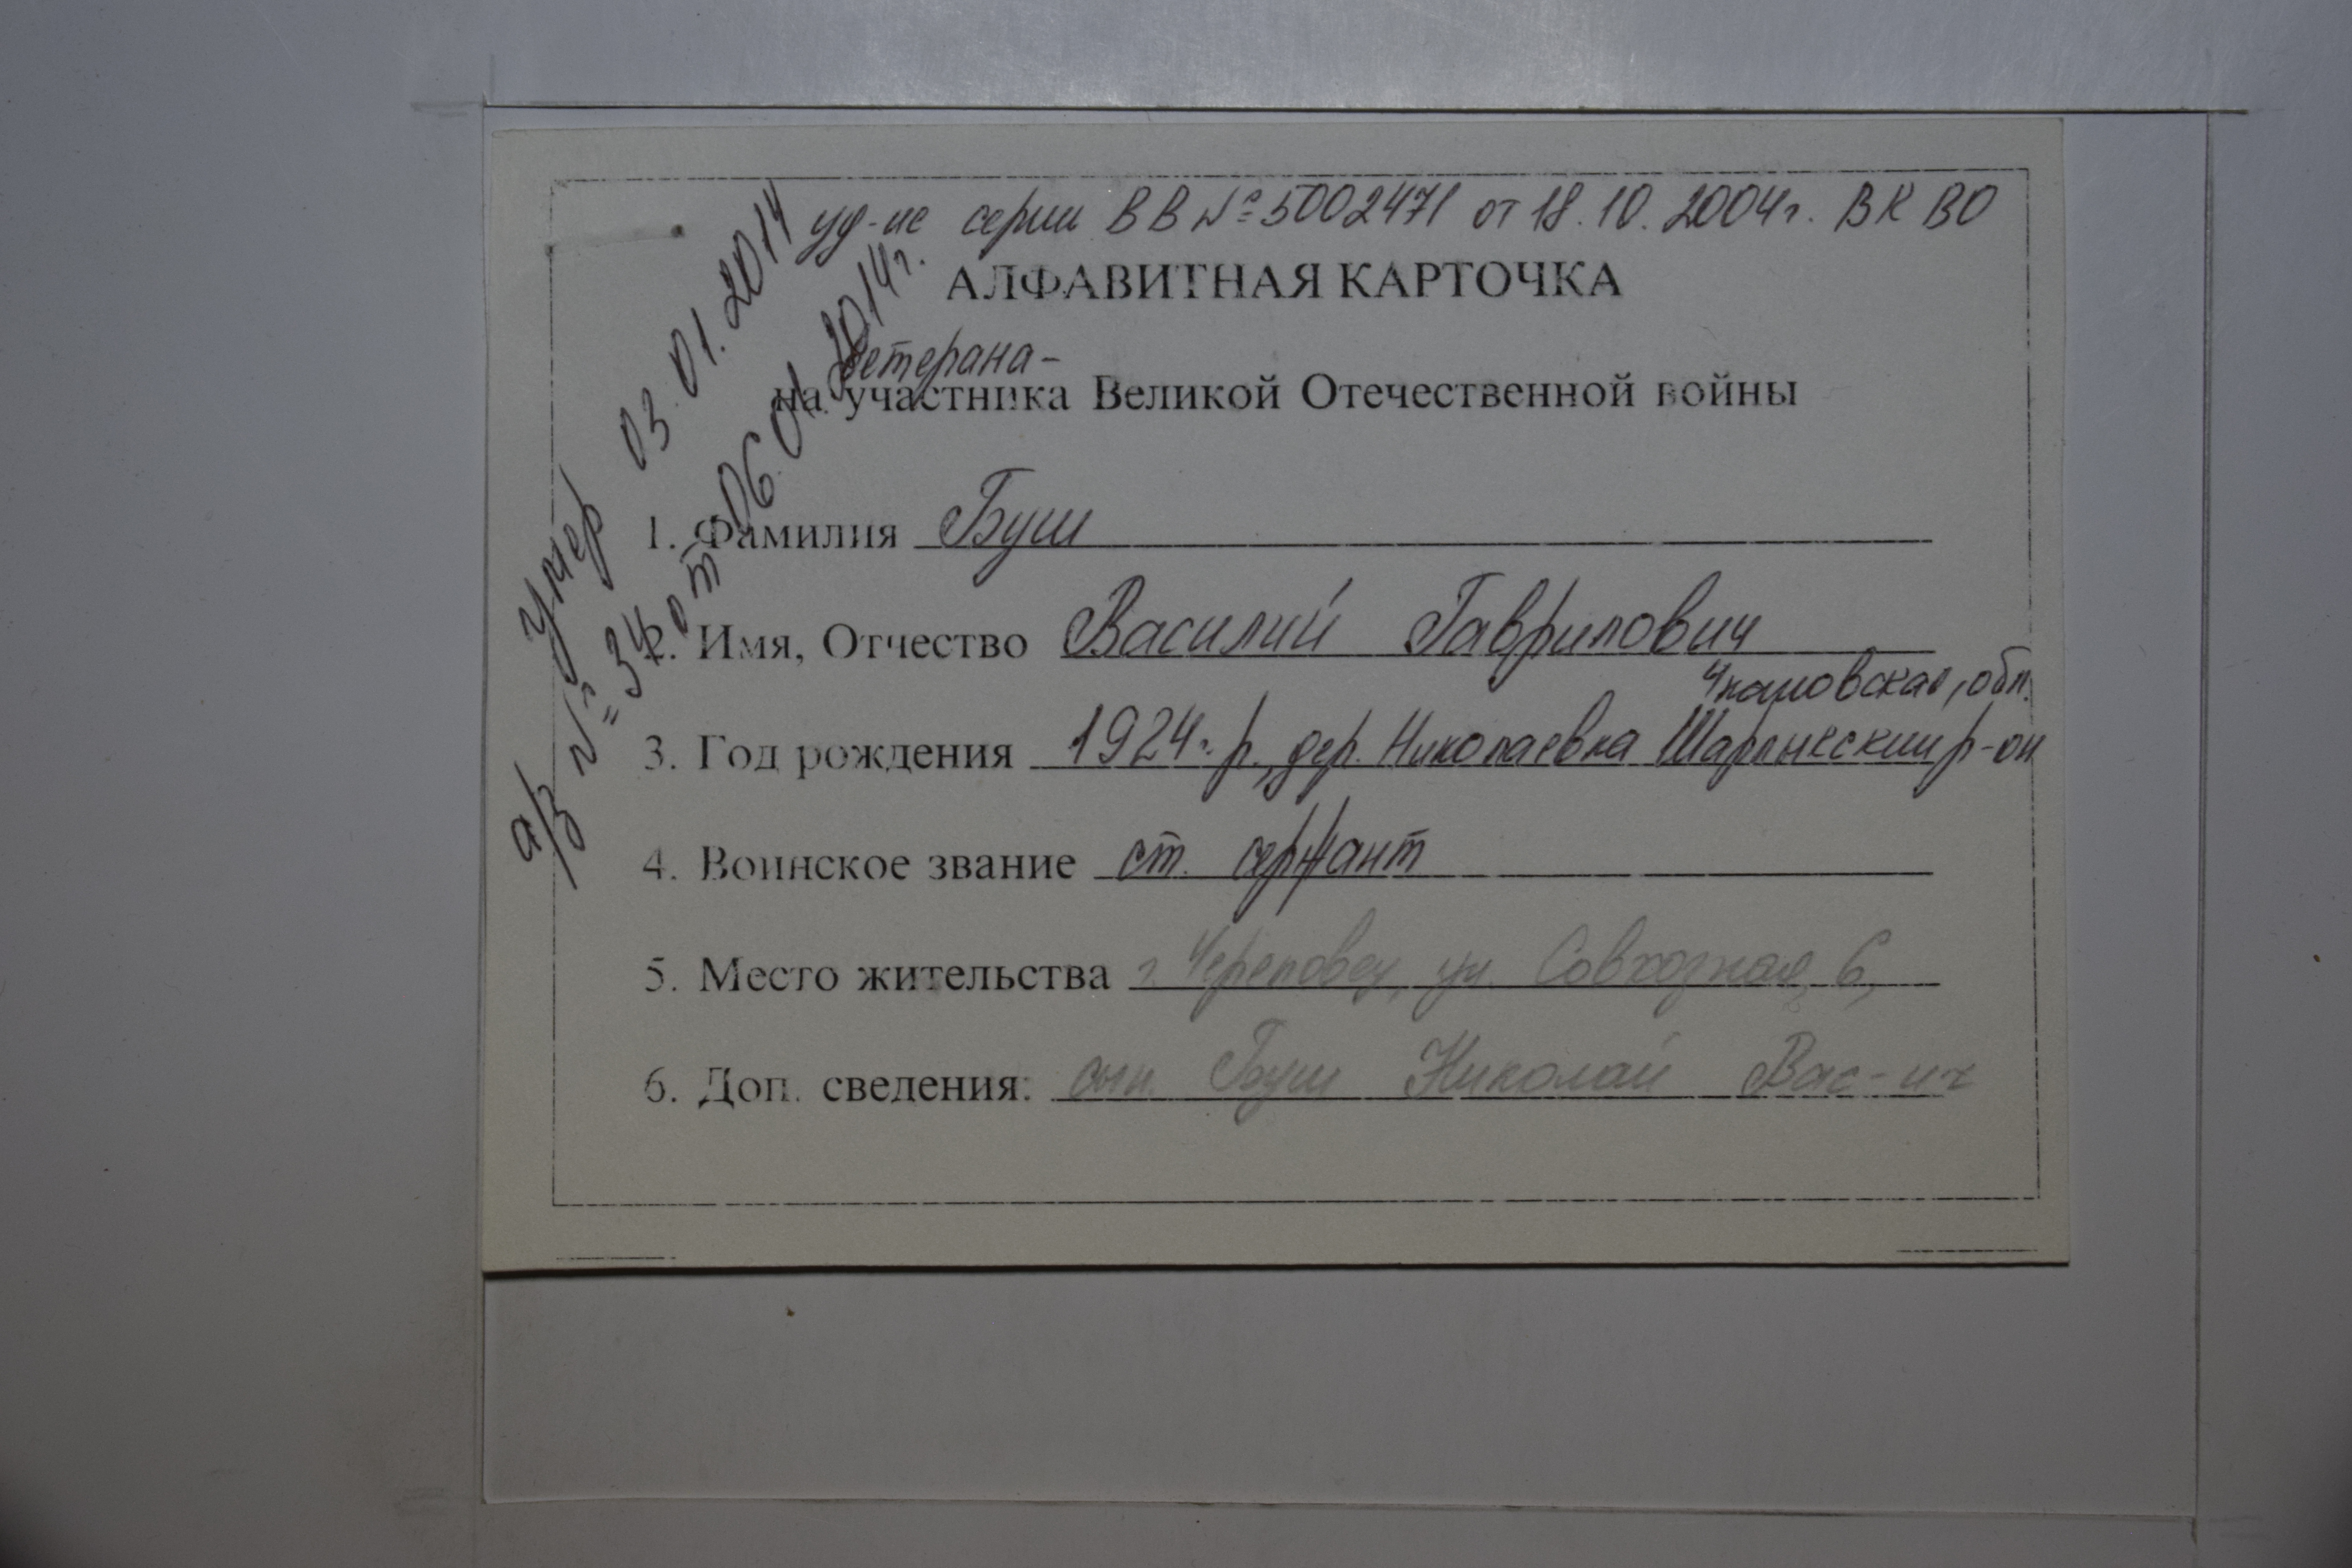 уд-ие серии ВВ № 5002471 от 18.10.2004г. ВК ВО
АЛФАВИТНАЯ КАРТОЧКА
ветерана-
на участника Великой Отечественной войны
умер 03.01.2014
а/з № 34 от 06.01.2014г.
1. Фамилия Буш
2. Имя, Отчество Василий Гаврилович
Чкаловская, обл.
3. Год рождения 1924г.р., дер. Николаевка Шарлыкский р-он
4. Воинское звание ст. сержант
5. Место жительства г. Череповец, ул. Совхозная, 6,
6. Доп. сведения: сын. Буш Николай Вас-ич